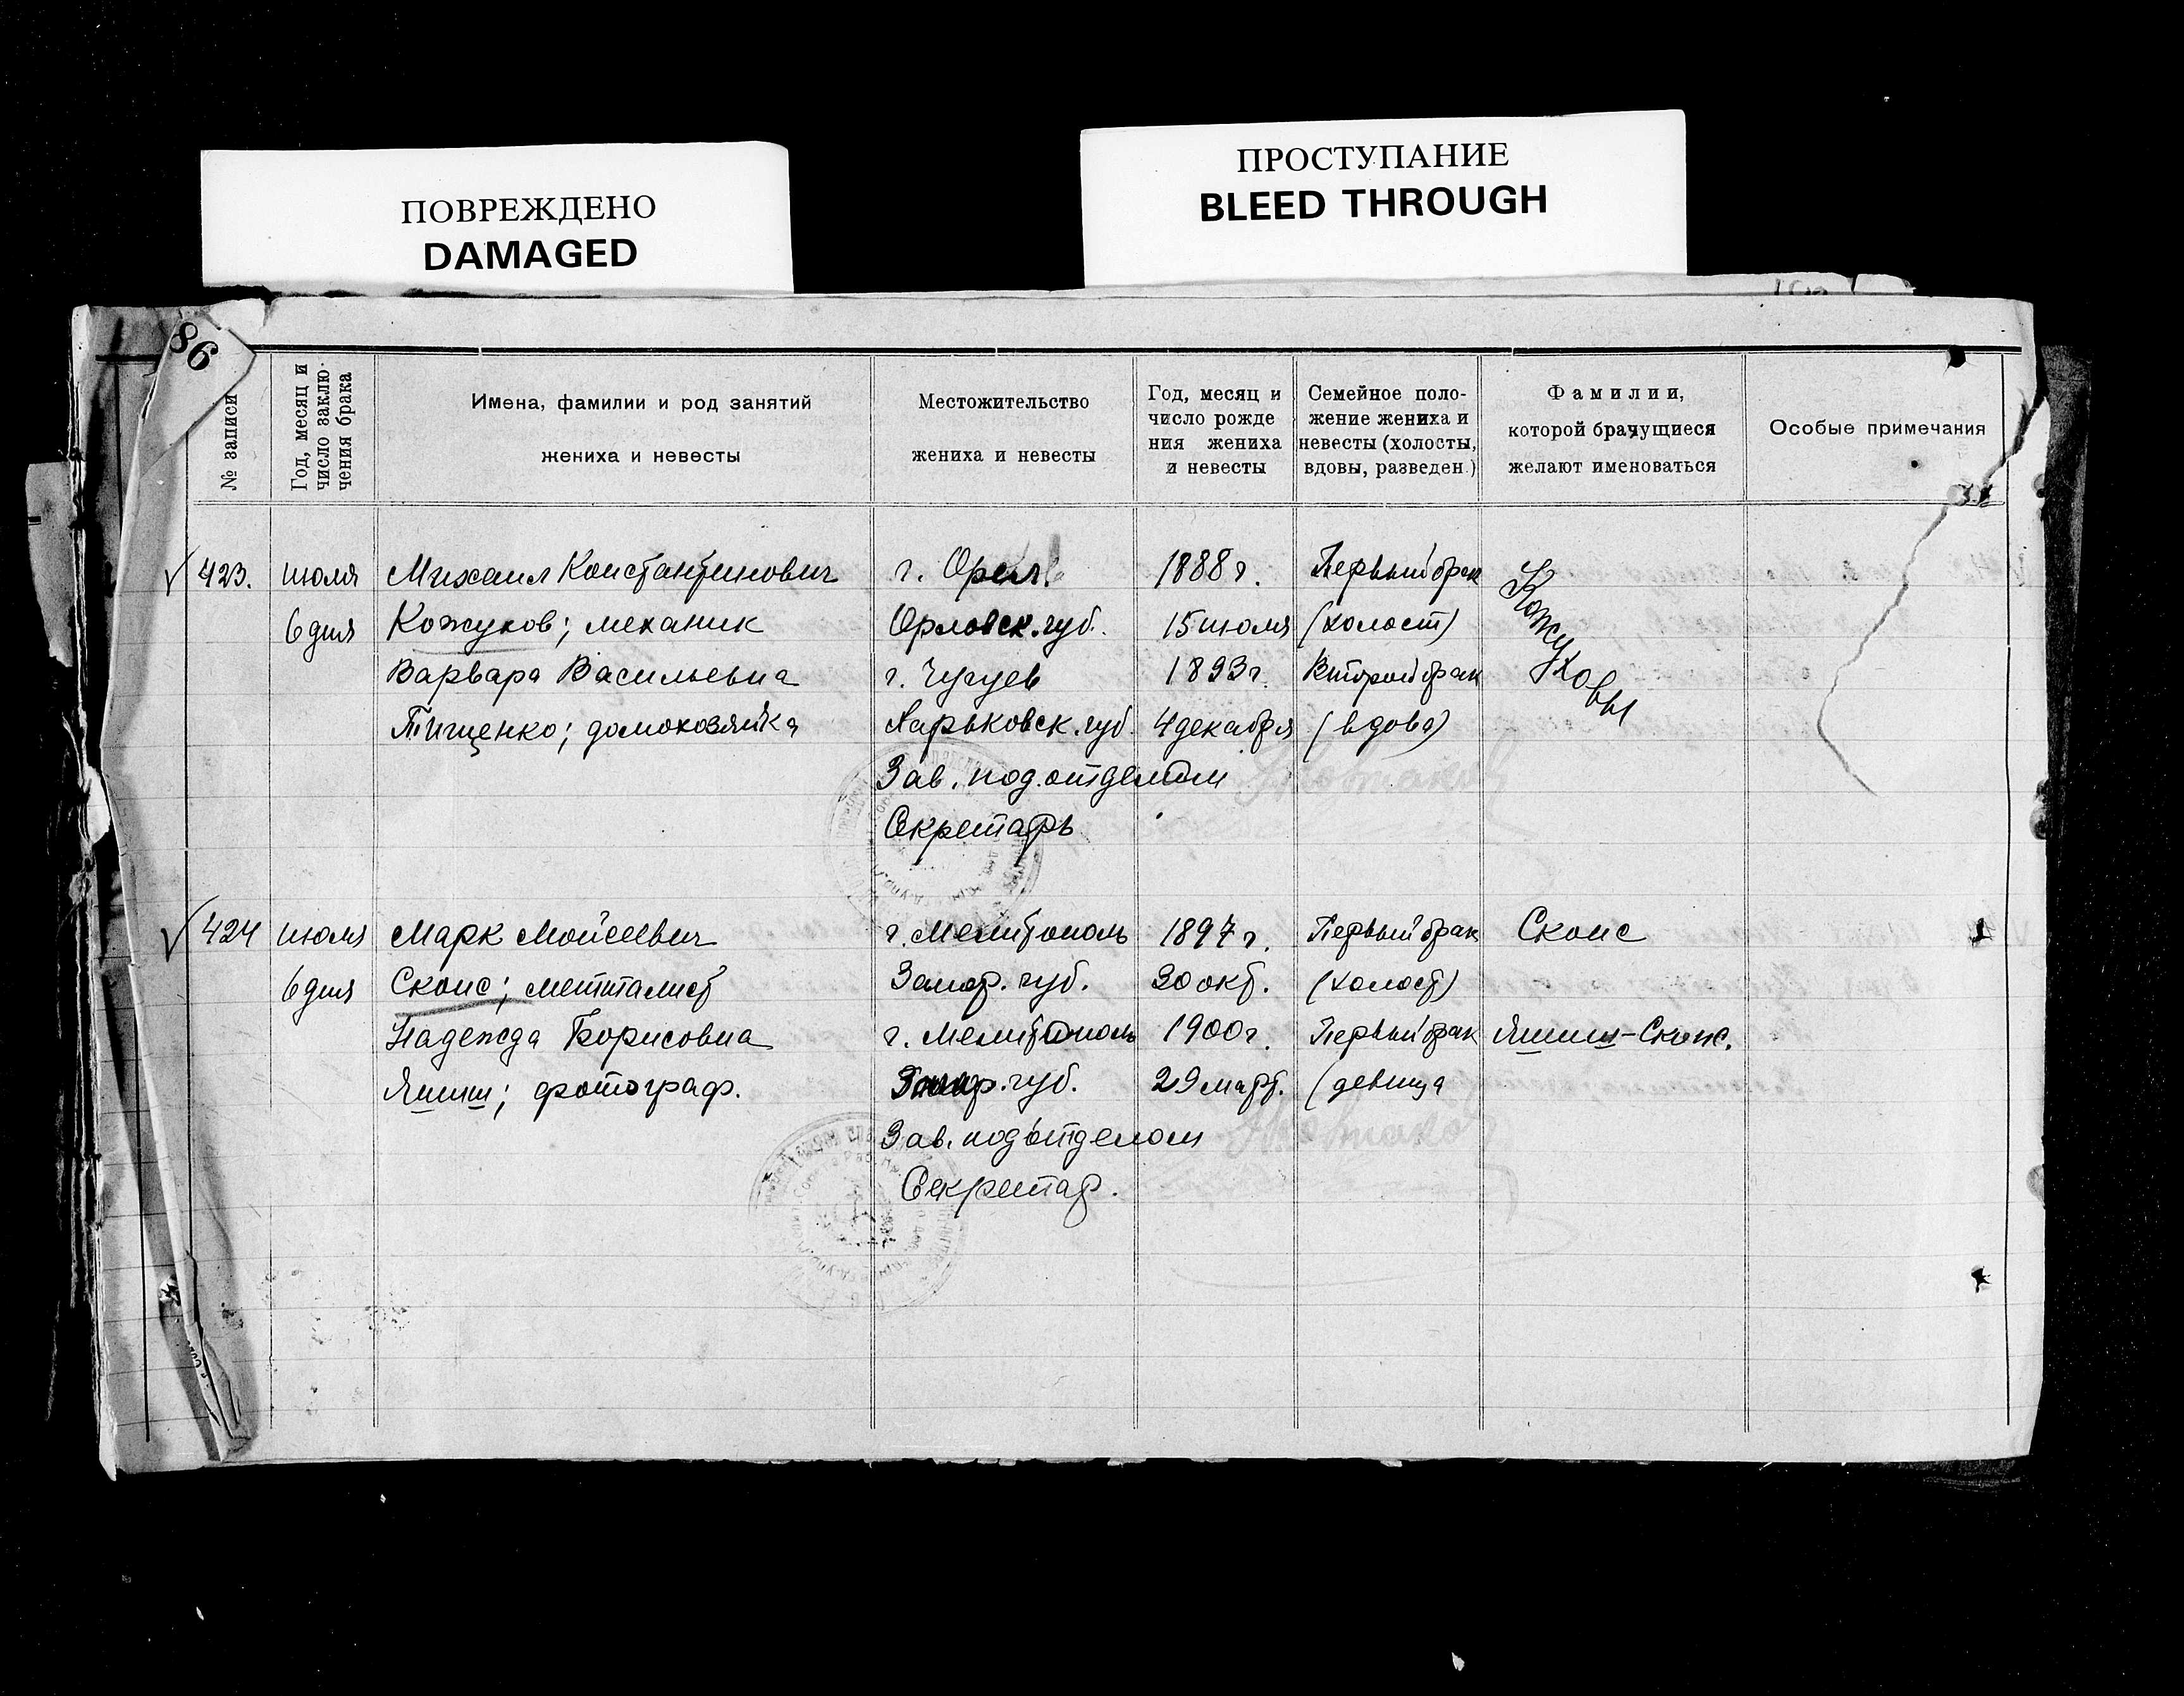 ПОВРЕЖДЕНО
DAMAGED
ПРОСТУПАНИЕ
BLEED THROUGH
86
№ записи
Год, месяц и
число заклю-
чения брака
Имена, фамилии и род занятий
жениха и невесты
Местожительство
жениха и невесты
Год, месяц и
число рожде
ния жениха
и невесты
Семейное поло-
жение жениха и
невесты (холосты,
вдовы, разведен.)
Фамилии,
которой брачущиеся
желают именоваться
Особые примечания
423. июля Михаил Константинович г. Орел 1888 г. Первый брак Кожуховы
6 дня Кожухов; механик Орловск. губ. 15 июля (холост)
Варвара Васильевна г. Чугуев 1893 г. Второй брак
Тищенко; домохозяйка Харьковск. губ. 4 декабря (вдова)
Зав. под.отделом
Секретарь
424 июля Марк Мойсеевич г. Мелитополь 1897 г. Первый брак Скоис
6 дня Скоис; метталист Запор. губ. 30 окт. (холост)
Надежда Борисовна г. Мелитополь 1900 г. Первый брак
фотограф. губ. 29 март. (девица
Зав. подотделом
Секретар.